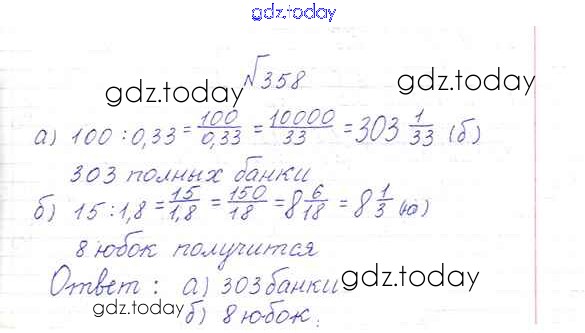 gdz.today
√358
gdz.today gdz.today
а) 100 : 0,33 = 100/0,33 = 10000/33 = 303 1/33 (б)
303 полных банки
б) 15 : 1,8 = 15/1,8 = 150/18 = 8 6/18 = 8 1/3 (ю)
8 юбок получится
Ответ : а) 303 банки gdz.today
gdz.today б) 8 юбок.